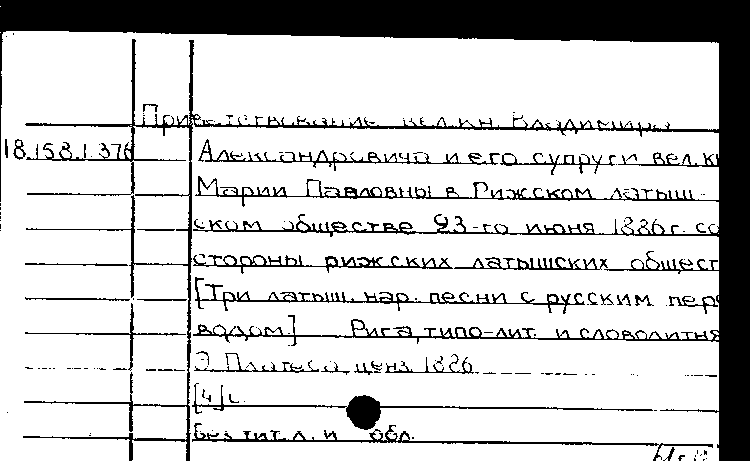 Приветствование вел. кн. Владимира
18.158.1.376 Александровича и его супруги вел. к
Марии Павловны в Рижском латыш-
ском обществе 23-го июня 1886 г. со
стороны рижских латышских общест
[Три латыш. нар. песни с русским пере
водом] Рига, типо-лит. и словолитня
Э. Платеса, ценз. 1886
[4] с.
Без тит. л. и обл.